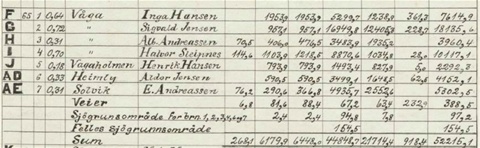 F 55 1 0,64 Våga Inga Hansen 1953,9 1953,9 5299,7 1238,9 361,3 7614,9
G 2 0,72 " Sigvald Jensen 957,1 957,1 16949,8 12405,8 228,7 18185,6
H 3 0,31 " Alb. Andreassen 70,5 406,0 476,5 3483,9 1935,2 3960,4
I 4 0,70 " Halvor Steipnes 114,6 1103,9 1218,5 8870,6 1034,8 28,0 10117,1
J 5 0,18 Vagaholmen Henrik Hansen 793,9 793,9 1493,9 827,9 5,0 2292,8
AD 6 0,33 Heimly Aldor Jensen 590,5 590,5 3499,1 1648,5 62,5 4152,1
AE 7 0,31 Solvik E. Andreassen 76,2 290,6 366,8 4935,7 2552,6 5302,5
Veier 6,8 81,6 88,4 67,2 63,9 232,9 388,5
Sjögrunsområde for brn. 1,2,3,4,6 og 7 2,4 2,4 94,8 7,8 97,2
Felles sjögrunnsområde 154,5 154,5
Sum 268,1 6179,9 6448,0 44848,7 21714,4 918,4 52215,1